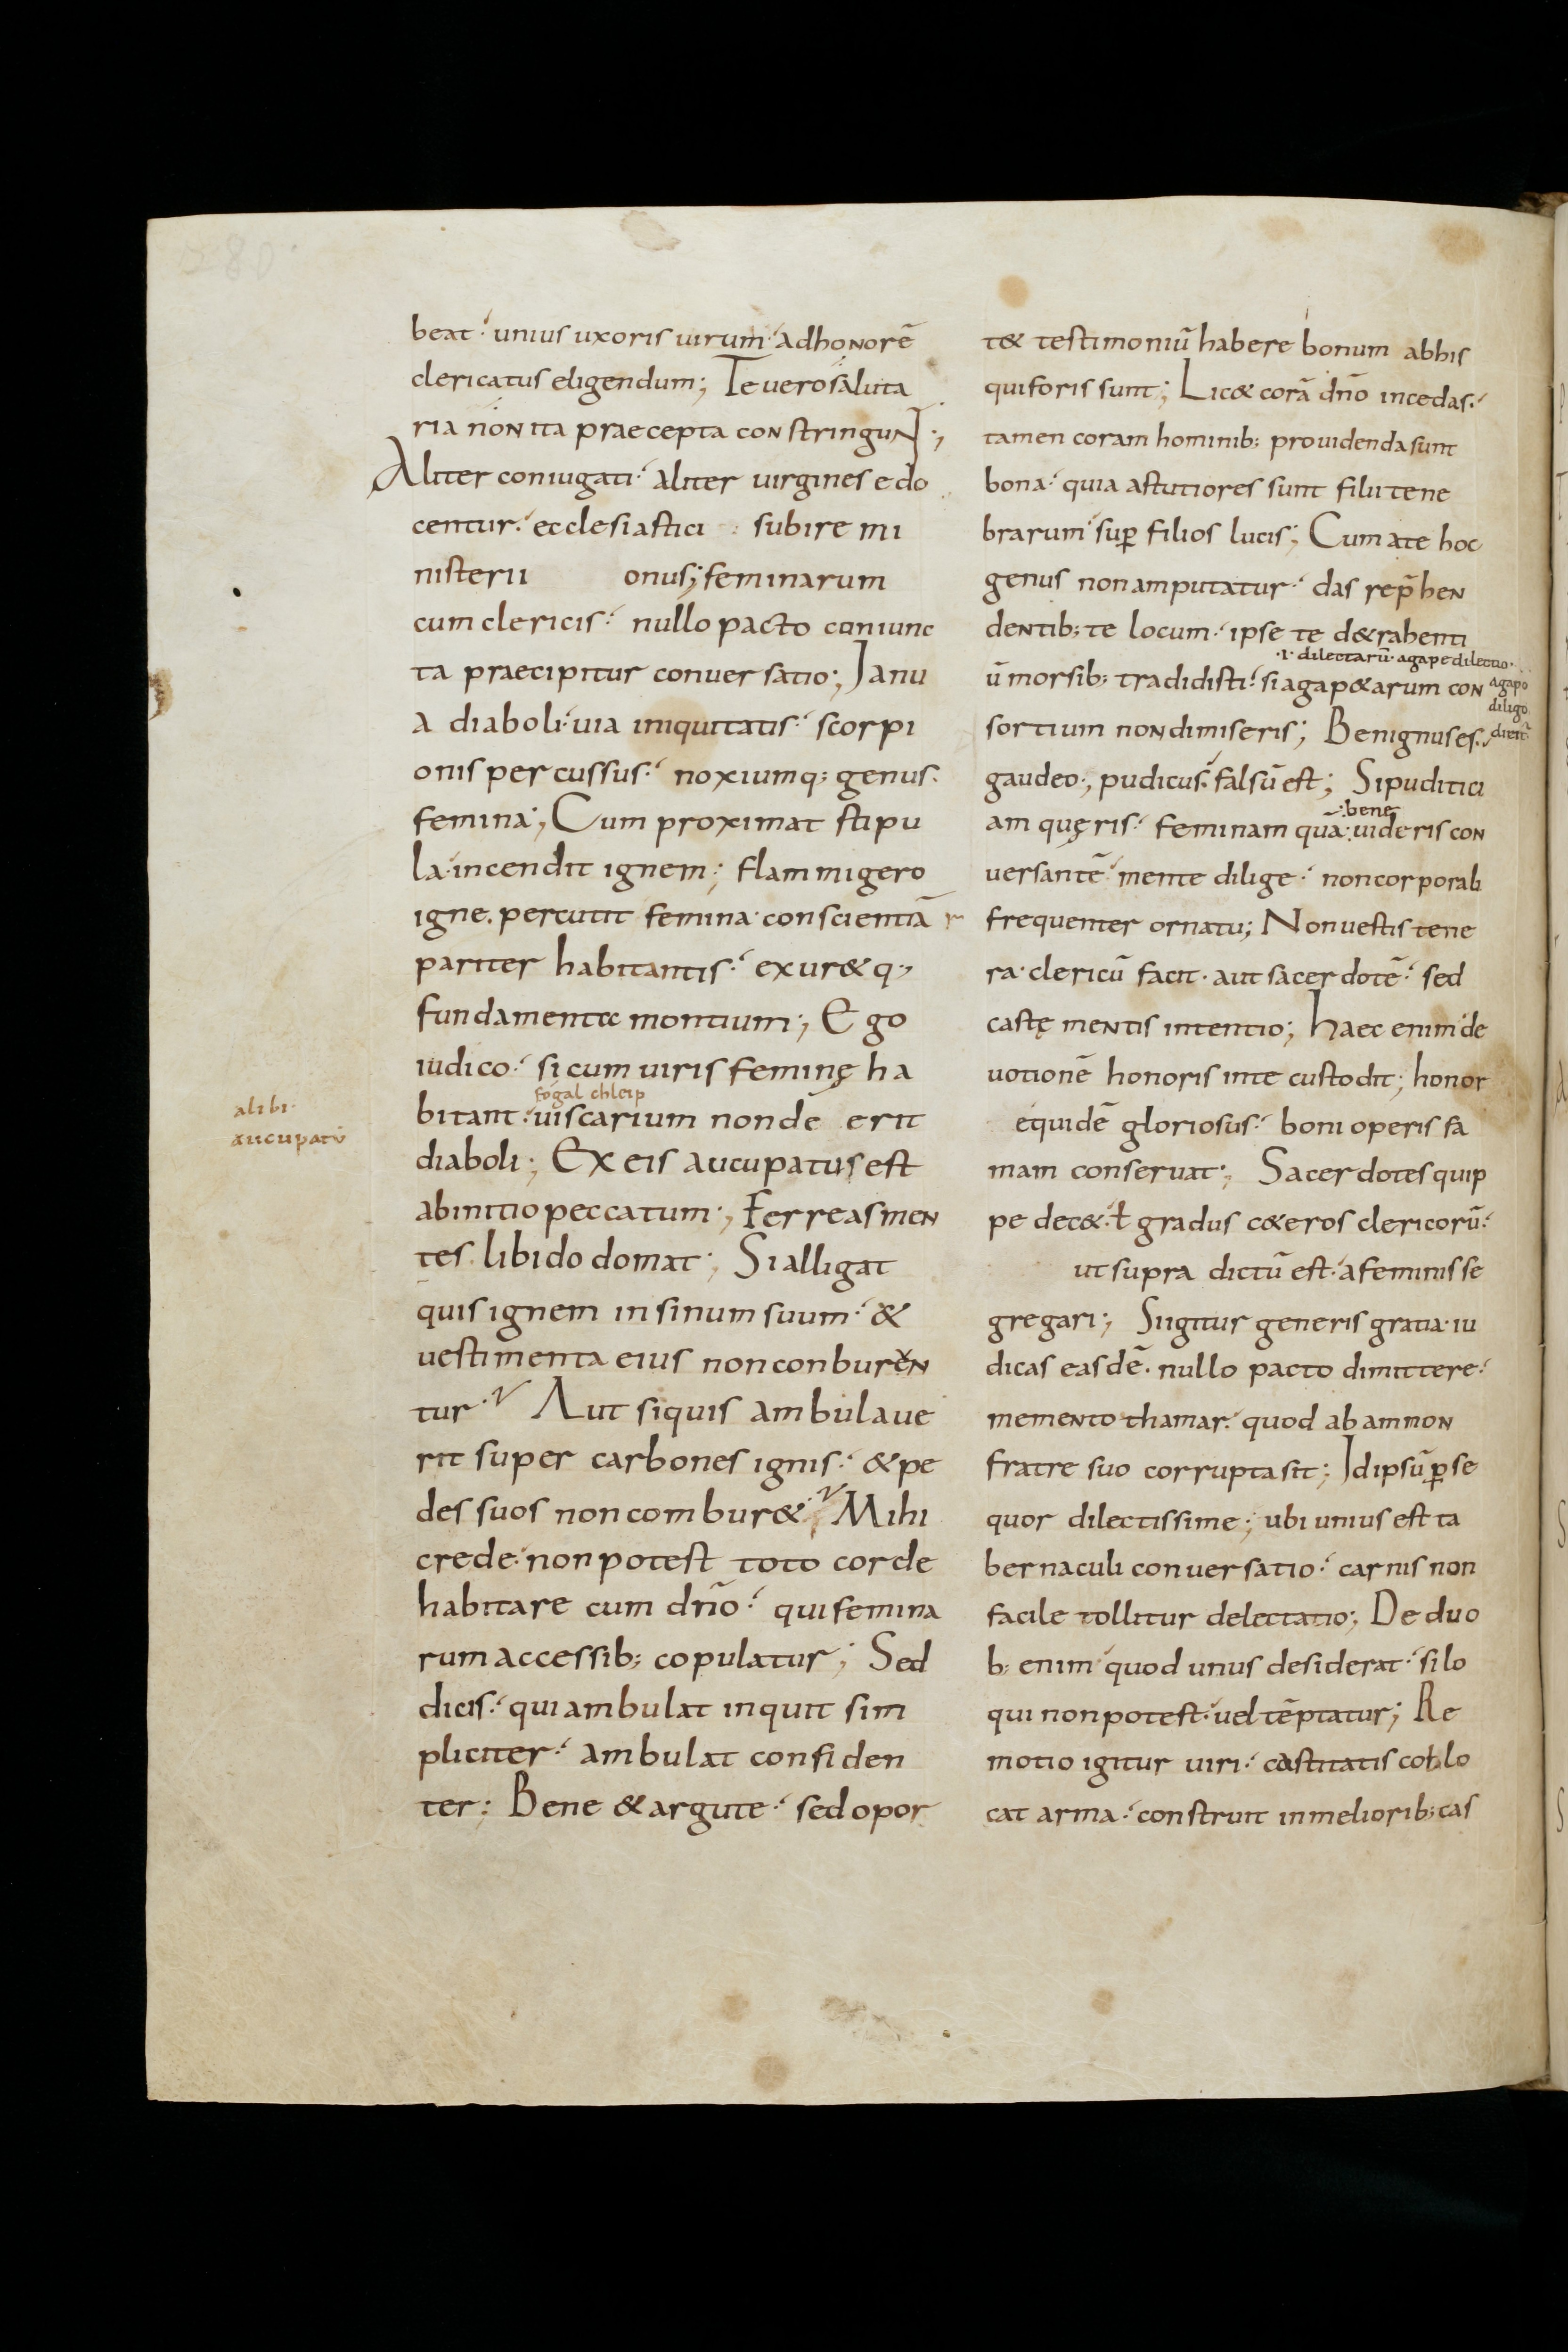 beat·⸵ unius uxoris uirum· adhonorē
clericatus eligendum; Te uero saluta
ria non ita praecepta constringunt;
Aliter coniugati·⸵ aliter uirgines edo
centur·⸵ ecclesiastici subire mi
nisterii onus; feminarum
cum clericis·⸵ nullo pacto coniunc
ta praecipitur conuersatio; Ianu
a diaboli·⸵ uia iniquitatis·⸵ scorpi
onis percussus·⸵ noxiumq; genus·
femina; Cum proximat stipu
la· incendit ignem; flammigero
igne· percutit femina· conscientiā
pariter habitantis·⸵ exur& q;
fundamenta montium; Ego
iudico·⸵ si cum uiris feminę ha
fógal chleip
bitant·⸵ uiscarium non de erit
alibi·
aucupatū
diaboli; Ex eis aucupatus est
ab initio peccatum; Ferreas men
tes libido domat; Si alligat
quis ignem in sinum suum·⸵ &
uestimenta eius non conburen
tur·? Aut si quis ambulaue
rit super carbones ignis·⸵ & pe
des suos non combur&·? Mihi
crede·⸵ non potest toto corde
habitare cum dn̄o·⸵ qui femina
rum accessib; copulatur; Sed
dicis·⸵ qui ambulat inquit sim
pliciter·⸵ ambulat confiden
ter; Bene & argute·⸵ sed opor
t& testimoniū habere bonum ab his
qui foris sunt; Lic& corā dn̄o incedas·⸵
tamen coram hominib; prouidenda sunt
bona·⸵ quia astutiores sunt filii tene
brarum· sup̄ filios lucis; Cum a te hoc
genus non amputatur·⸵ das rep̄hen
dentib; te locum·⸵ ipse te d&rahenti
·i· dilectarū· agape dilectio·
ū morsib; tradidisti·⸵ si agap&arum con
agapo
diligo
sortium non dimiseris; Benignus es·⸵
gaudeo; pudicus·⸵ falsū est; Si puditici
bene
am quęris·⸵ feminam quā uideris con
uersantē· mente dilige·⸵ non corporali
frequenter ornatu; Non uestis tene
ra· clericū facit· aut sacerdotē·⸵ sed
castę mentis intentio; haec enim de
uotionē honoris in te custodit; honor
equidē gloriosus·⸵ boni operis fa
mam conseruat; Sacerdotes quip
pe dec&·⸵ ł gradus c&eros clericorū·⸵
ut supra dictū est·⸵ a feminis se
gregari; Si igitur generis gratia· iu
dicas easdē· nullo pacto dimittere·⸵
memento thamar·⸵ quod ab ammon
fratre suo corrupta sit; Id ipsū p̄se
quor dilectissime; ubi unius est ta
bernaculi conuersatio·⸵ carnis non
facile tollitur delectatio; De duo
b; enim· quod unus desiderat·⸵ si lo
qui non potest·⸵ uel tēptatur; Re
motio igitur uiri·⸵ castitatis collo
cat arma·⸵ construit in meliorib; cas